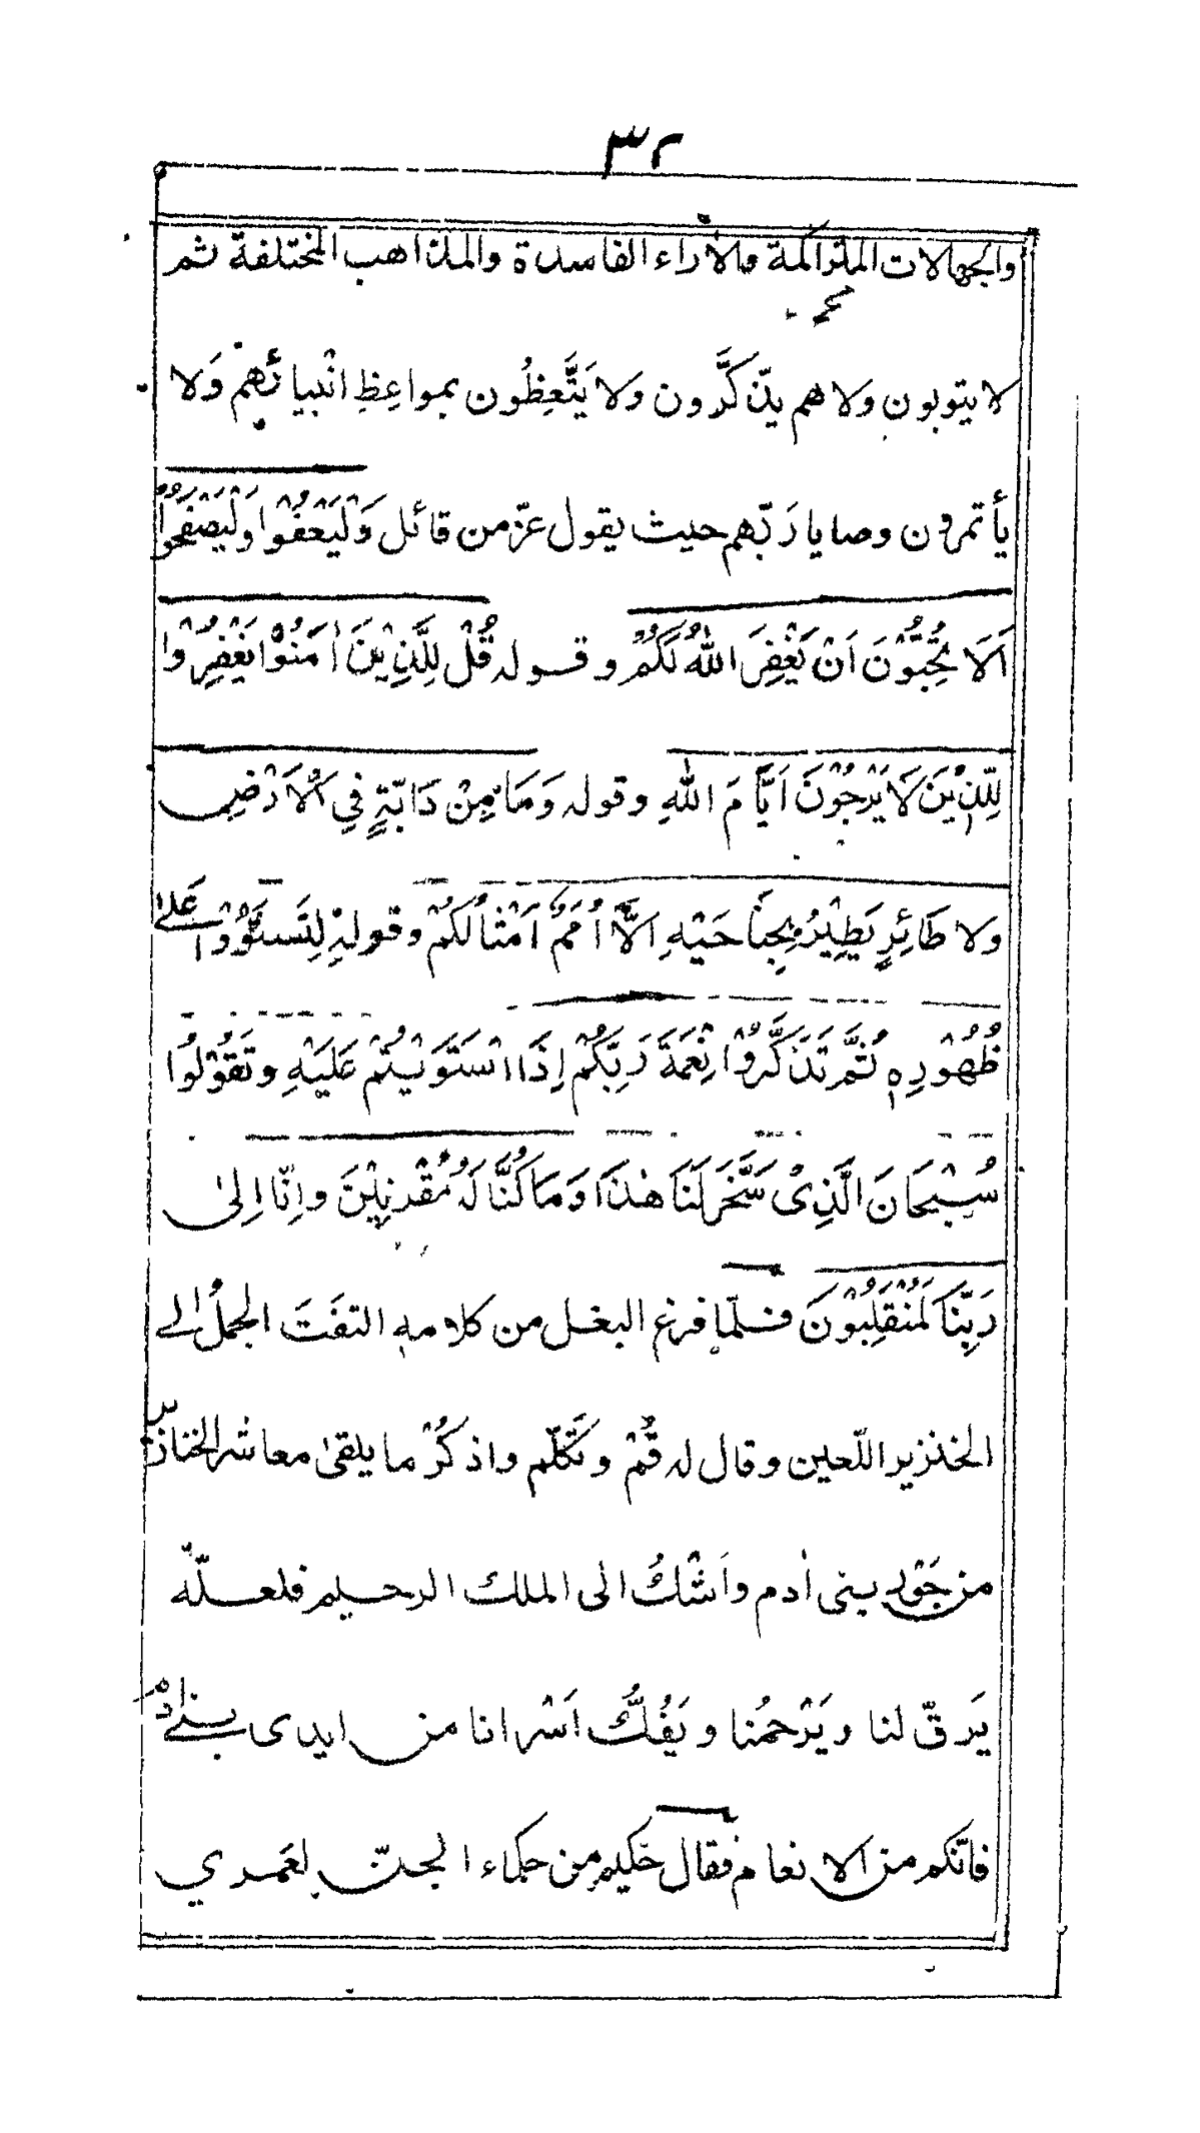 ٣٢
والجهالات المتراكمة والآراء الفاسدة والمذاهب المختلفة ثم
لا يتوبون ولا هم يذّكَّرون ولا يَتَّعِظُون بمواعِظِ انْبيائهِمْ وَلا
يأتمرون وصايا رَبّهم حيث يقول عزّ من قائل وَلْيَعْفُوْا وَلْيَصْفَحُوْا
اَلَا تُحِبُّوْنَ اَنْ يَّغْفِرَ اللّٰهُ لَكُمْ وقوله قُلْ لِلَّذِيْنَ اٰمَنُوْا يَغْفِرُوْا
لِلّذِيْنَ لَا يَرْجُوْنَ اَيَّامَ اللّٰهِ وقوله وَمَا مِنْ دَابّةٍ فِي الْاَرْضِ
ولا طَائِرٍ يَطِيْرُ بِجَنَاحَيْهِ اِلَّا اُمَمٌ اَمْثَالُكُمْ وقولهِ لِتَسْتَوُوْا عَلىٰ
ظُهُوْرِهٖ ثُمَّ تَذَكَّرُوْا نِعْمَةَ رَبِّكُمْ اِذَا اسْتَوَيْتُمْ عَلَيْهِ وتَقُوْلُوْا
سُبْحَانَ الَّذِىْ سَخَّرَ لَنَا هٰذَا وَمَا كُنَّا لَهُ مُقْرِنِيْنَ واِنّا اِلىٰ
رَبِّنَا لَمُنْقَلِبُوْنَ فلمّا فرغ البغل من كلامهٖ التفَتَ الجملُ الى
الخنزير اللّعين وقال له قُمْ وتَكَلّم واذكُرْ ما يلقىٰ معاشر الخنازير
من جَوْرِ بنى اٰدم واَشْكُ الى الملك الرحيم فلعلّه
يَرقّ لنا ويَرْحمُنا ويَفُكُّ اَسْرانا من ايدى بنى اٰدم
فانّكم من الانعام فقال حَكيم من حكماء الجنّ لعَمري